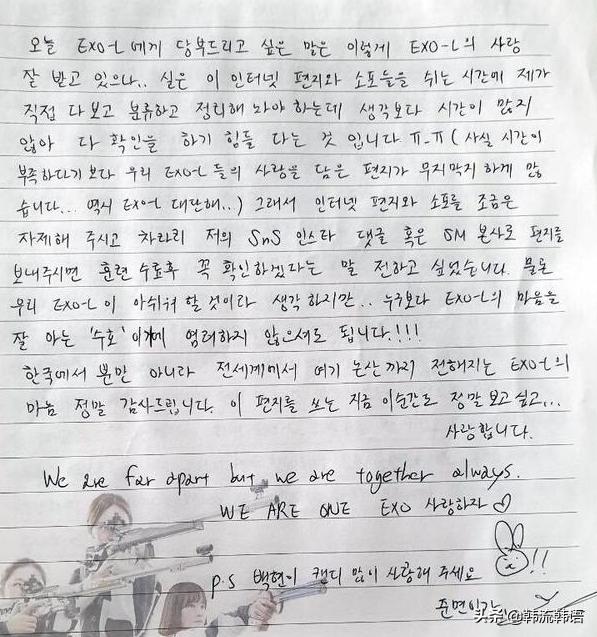 오늘 EXO-L에게 당부드리고 싶은 말은 이렇게 EXO-L의 사랑
잘 받고 있으나.. 실은 이 인터넷 편지와 소포들을 쉬는 시간에 제가
직접 다 보고 분류하고 정리해 놔야 하는데 생각보다 시간이 많지
않아 다 확인을 하기 힘들 다는 것 입니다 ㅠ_ㅠ (사실 시간이
부족하다기 보다 우리 EXO-L 들의 사랑을 담은 편지가 무지막지 하게 많
습니다... 역시 EXO-L 대단해...) 그래서 인터넷 편지와 소포를 조금은
자제해 주시고 차라리 저의 SnS 인스타 댓글 혹은 SM 본사로 편지를
보내주시면 훈련 수료후 꼭 확인하겠다는 말 전하고 싶었습니다. 물론
우리 EXO-L이 아쉬워 할 것이라 생각 하지만.. 누구보다 EXO-L의 마음을
잘 아는 '수호' 이기에 염려하지 않으셔도 됩니다.!!!
한국에서 뿐만 아니라 전세계에서 여기 논산까지 전해지는 EXO-L의
마음 정말 감사드립니다. 이 편지를 쓰는 지금 이순간도 정말 보고 싶고...
사랑합니다.
We are far apart but we are together always.
WE ARE ONE EXO 사랑하자 ♡
!!
p.s 백현이 캔디 많이 사랑해 주세요
준면이가
头条@韩流韩语